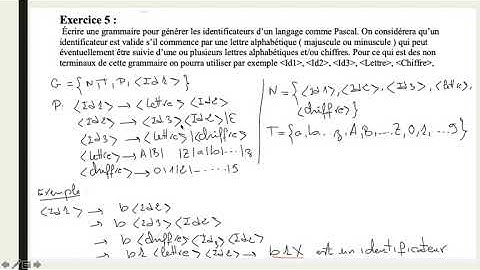 Exercice 5 :
Écrire une grammaire pour générer les identificateurs d'un langage comme Pascal. On considérera qu'un
identificateur est valide s'il commence par une lettre alphabétique ( majuscule ou minuscule ) qui peut
éventuellement être suivie d'une ou plusieurs lettres alphabétiques et/ou chiffres. Pour ce qui est des non
terminaux de cette grammaire on pourra utiliser par exemple <Id1>, <Id2>, <Id3>, <Lettre>, <Chiffre>.
G = {N,T, P, <Id1>}
P: <Id1> → <lettre> <Id2>
<Id2> → <Id3> <Id2> | ε
<Id3> → <lettre> | <chiffre>
<lettre> → A|B| |Z|a|b|...|z
<chiffre> → 0|1|2|.....|9
N = {<Id1>, <Id2>, <Id3>, <lettre>,
<chiffre>}
T = {a, b.. z, A, B, ... Z, 0, 1, ... 9}
Exemple
<Id1> → b <Id2>
→ b <Id3> <Id2>
→ b <chiffre> <Id2>
→ b1 <lettre> <Id2> → b1X est un identificateur